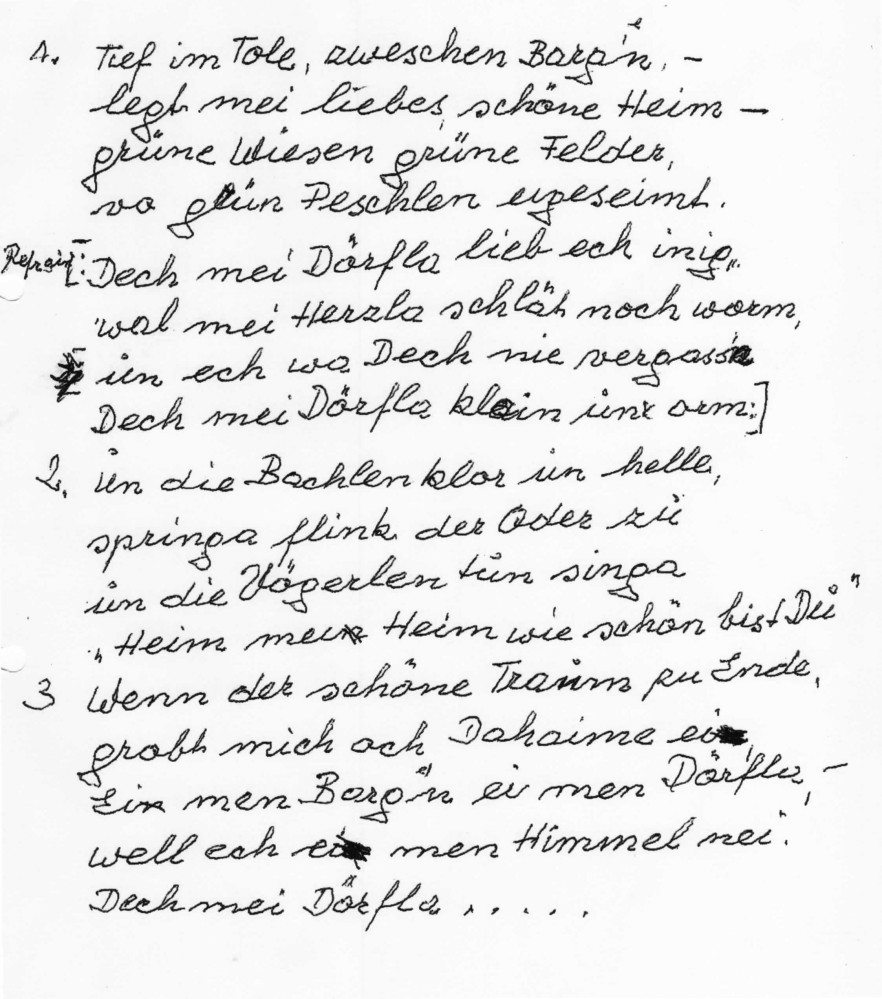 1. Tief im Tole, zweschen Barg'n, –
legt mei liebes, schöne Heim –
grüne Wiesen grüne Felder,
vo grün Peschlen eigeseimt.
Refrain [: Dech mei Dörfla lieb ech inig,
wal mei Herzla schlät noch worm,
ün ech wa Dech nie vergassa
Dech mei Dörfla klain ün orm :]
2. ün die Bachlen klor ün helle,
springa flink der Oder zü
ün die Vögerlen tün singa
„Heim mei Heim wie schön bist Dü"
3 Wenn der schöne Traum zu Ende,
grabt mich och Dahaime ei,
Ei men Barg'n ei men Dörfla, –
well ech ei men Himmel nei.
Dech mei Dörfla . . . . .